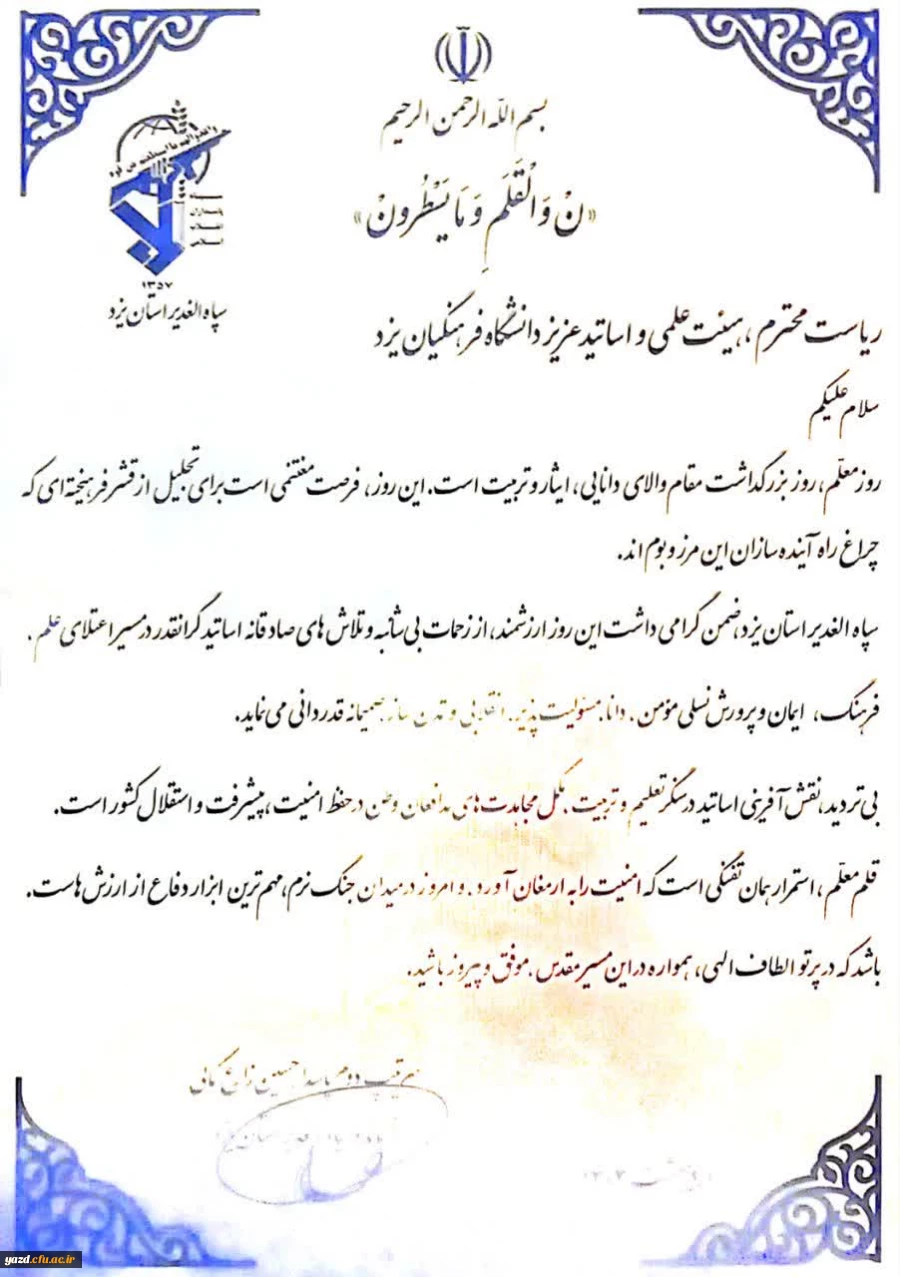 بسم الله الرحمن الرحیم
«نْ وَالْقَلَمِ وَمَا يَسْطُرُونْ»
۱۳۵۷
سپاه الغدیر استان یزد
ریاست محترم ، هیئت علمی و اساتید عزیز دانشگاه فرهنگیان یزد
سلام علیکم
روز معلّم، روز بزرگداشت مقام والای دانایی، ایثار و تربیت است. این روز، فرصت مغتنمی است برای تجلیل از قشر فرهیخته ای که
چراغ راه آینده سازان این مرز و بوم اند.
سپاه الغدیر استان یزد، ضمن گرامی داشت این روز ارزشمند، از زحمات بی شائبه و تلاش های صادقانه اساتید گرانقدر در مسیر اعتلای علم ،
فرهنگ، ایمان و پرورش نسلی مؤمن ، دانا، مسئولیت پذیر، انقلابی و تمدن ساز، صمیمانه قدردانی می نماید.
بی تردید، نقش آفرینی اساتید در سنگر تعلیم و تربیت ، مکمل مجاهدت های مدافعان وطن در حفظ امنیت ، پیشرفت و استقلال کشور است.
قلم معلّم ، استمرار همان تفنگی است که امنیت را به ارمغان آورد، و امروز در میدان جنگ نرم، مهم ترین ابزار دفاع از ارزش هاست.
باشد که در پرتو الطاف الهی، همواره در این مسیر مقدس ، موفق و پیروز باشید.
سرتیپ دوم پاسدار حسین زارع کمالی
yazd.cfu.ac.ir